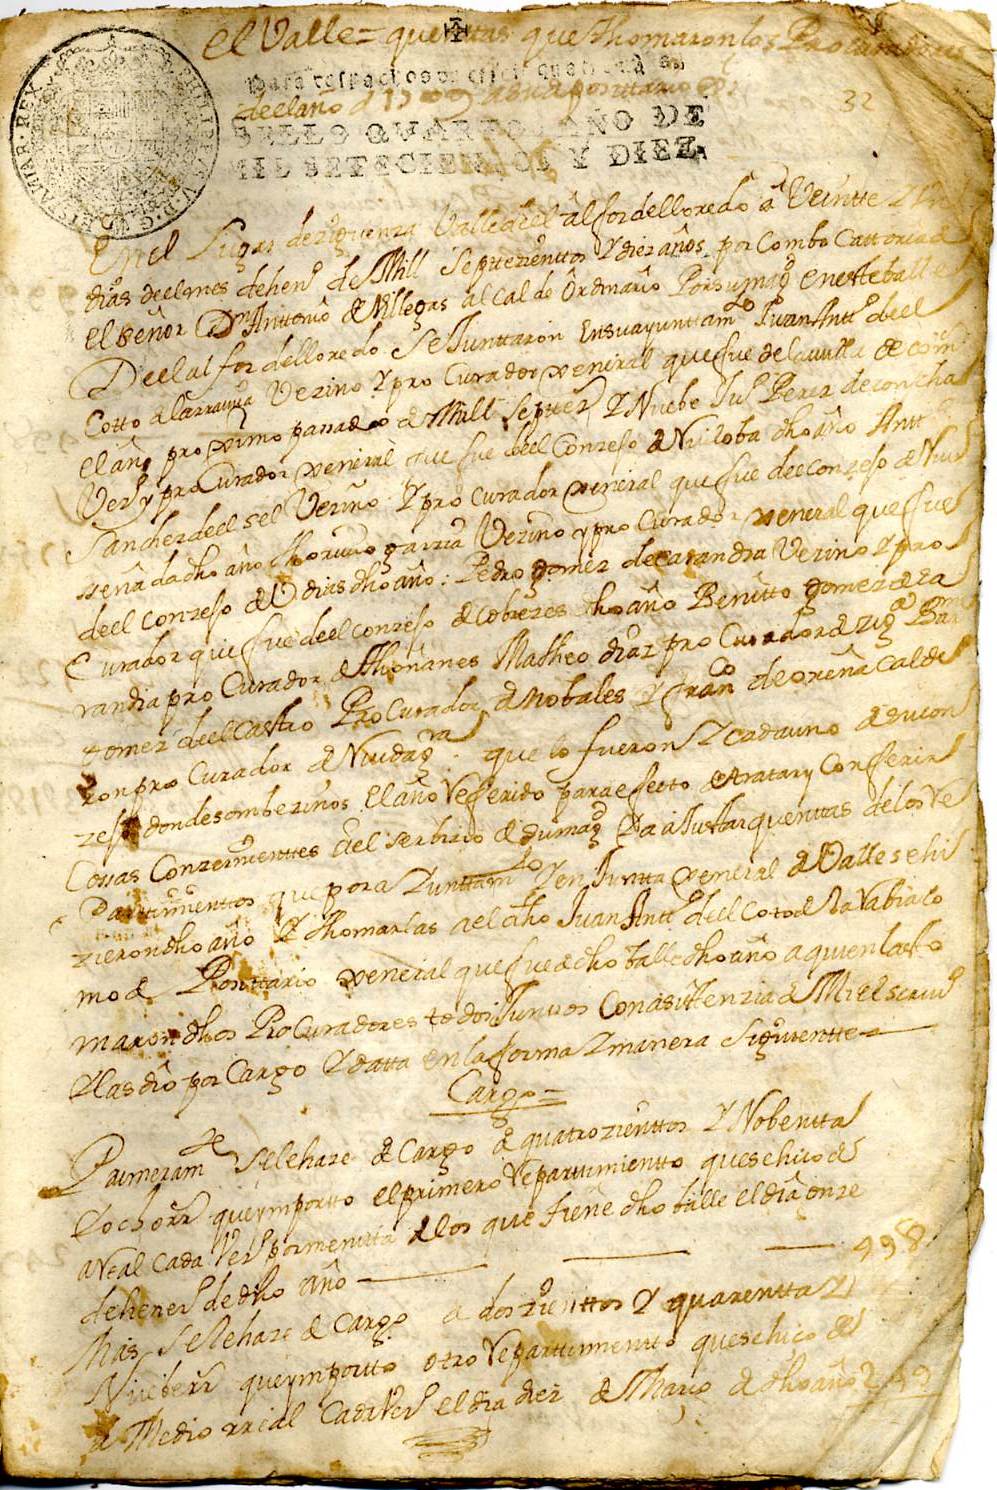 El Valle = quentas que thomaron los Procuradores
Para despachos de oficio quatro mrs
del año de 1709 a su Depositario
32
SELLO QVARTO, AÑO DE
MIL SETECIENTOS Y DIEZ.
PHILIPPVS V D G
HISPANIAR REX
En el Lugar de ziguenza Valle del alfoz de lloredo a Veintte y Un
dias del mes de hen.º de Mill Settezienttos y diez años, por Combocattoria de
el señor Dn Anttonio de Villegas alcalde Ordinario Por su magd en este balle
De el alfoz de lloredo se Junttaron en su ayunttamto Juan Anttº de el
Cotto de la rrauia Vezino y procurador xeneral que fue de la villa de com.s
el año proximo pasado de Mill settez.s y Nuebe Juº Perez de concha
Vez.º y procurador xeneral que fue del Conzejo de Ruiloba dho año Anttº
Sanchez de el sel Vezino y procurador xeneral que fue de el conzejo de Rui
seña da dho año thoriuio garzia Vezino y procurador xeneral que fue
de el conzejo de Vdias dho año: Pedro gomez de carandia Vezino y pro
Curador que fue de el conzejo de Cobrezes dho año Benitto gomez de ca
randia procurador de thoñanes Matheo diaz procurador de zigª Barme
gomez de el Castro Procurador de Nobales y franco de oreña Calde
ron procurador de Ruidagra que lo fueron y cada uno de su con
zejo donde son bezinos el año Referido para efectto de tratar y Conferir
Cosas Conzernienttes del serbizio de su magd y a ajustar quentas de los Re
parttimenttos que por aiunttamto y en Juntta xeneral de Valle se hi
zieron dho año y thomarlas a el dho Juan Anttº de el Coto de la Rabia co
mo de Posittario xeneral que fue de dho balle dho año a quien las tto
maron dhos Procuradores todos Junttos Con asistenzia de Mi el scriuº
y las dio por Cargo y datta en la forma y manera siguientte =
Cargo =
Primeramte se le haze de Cargo de quatrozienttos y Nobentta
y ocho rrs que ymportto el primero Reparttimientto que se hizo de
a Real cada Vezº por menitta de los que tiene dho balle el dia onze
de henerº de dho año 498
Mas se le haze de Cargo a dozienttos y quarentta y
Nuebe rrs que ymportto otro Reparttimentto que se hizo de
a Medio rreal Cada Vezº el dia diez de Março de dho año 249